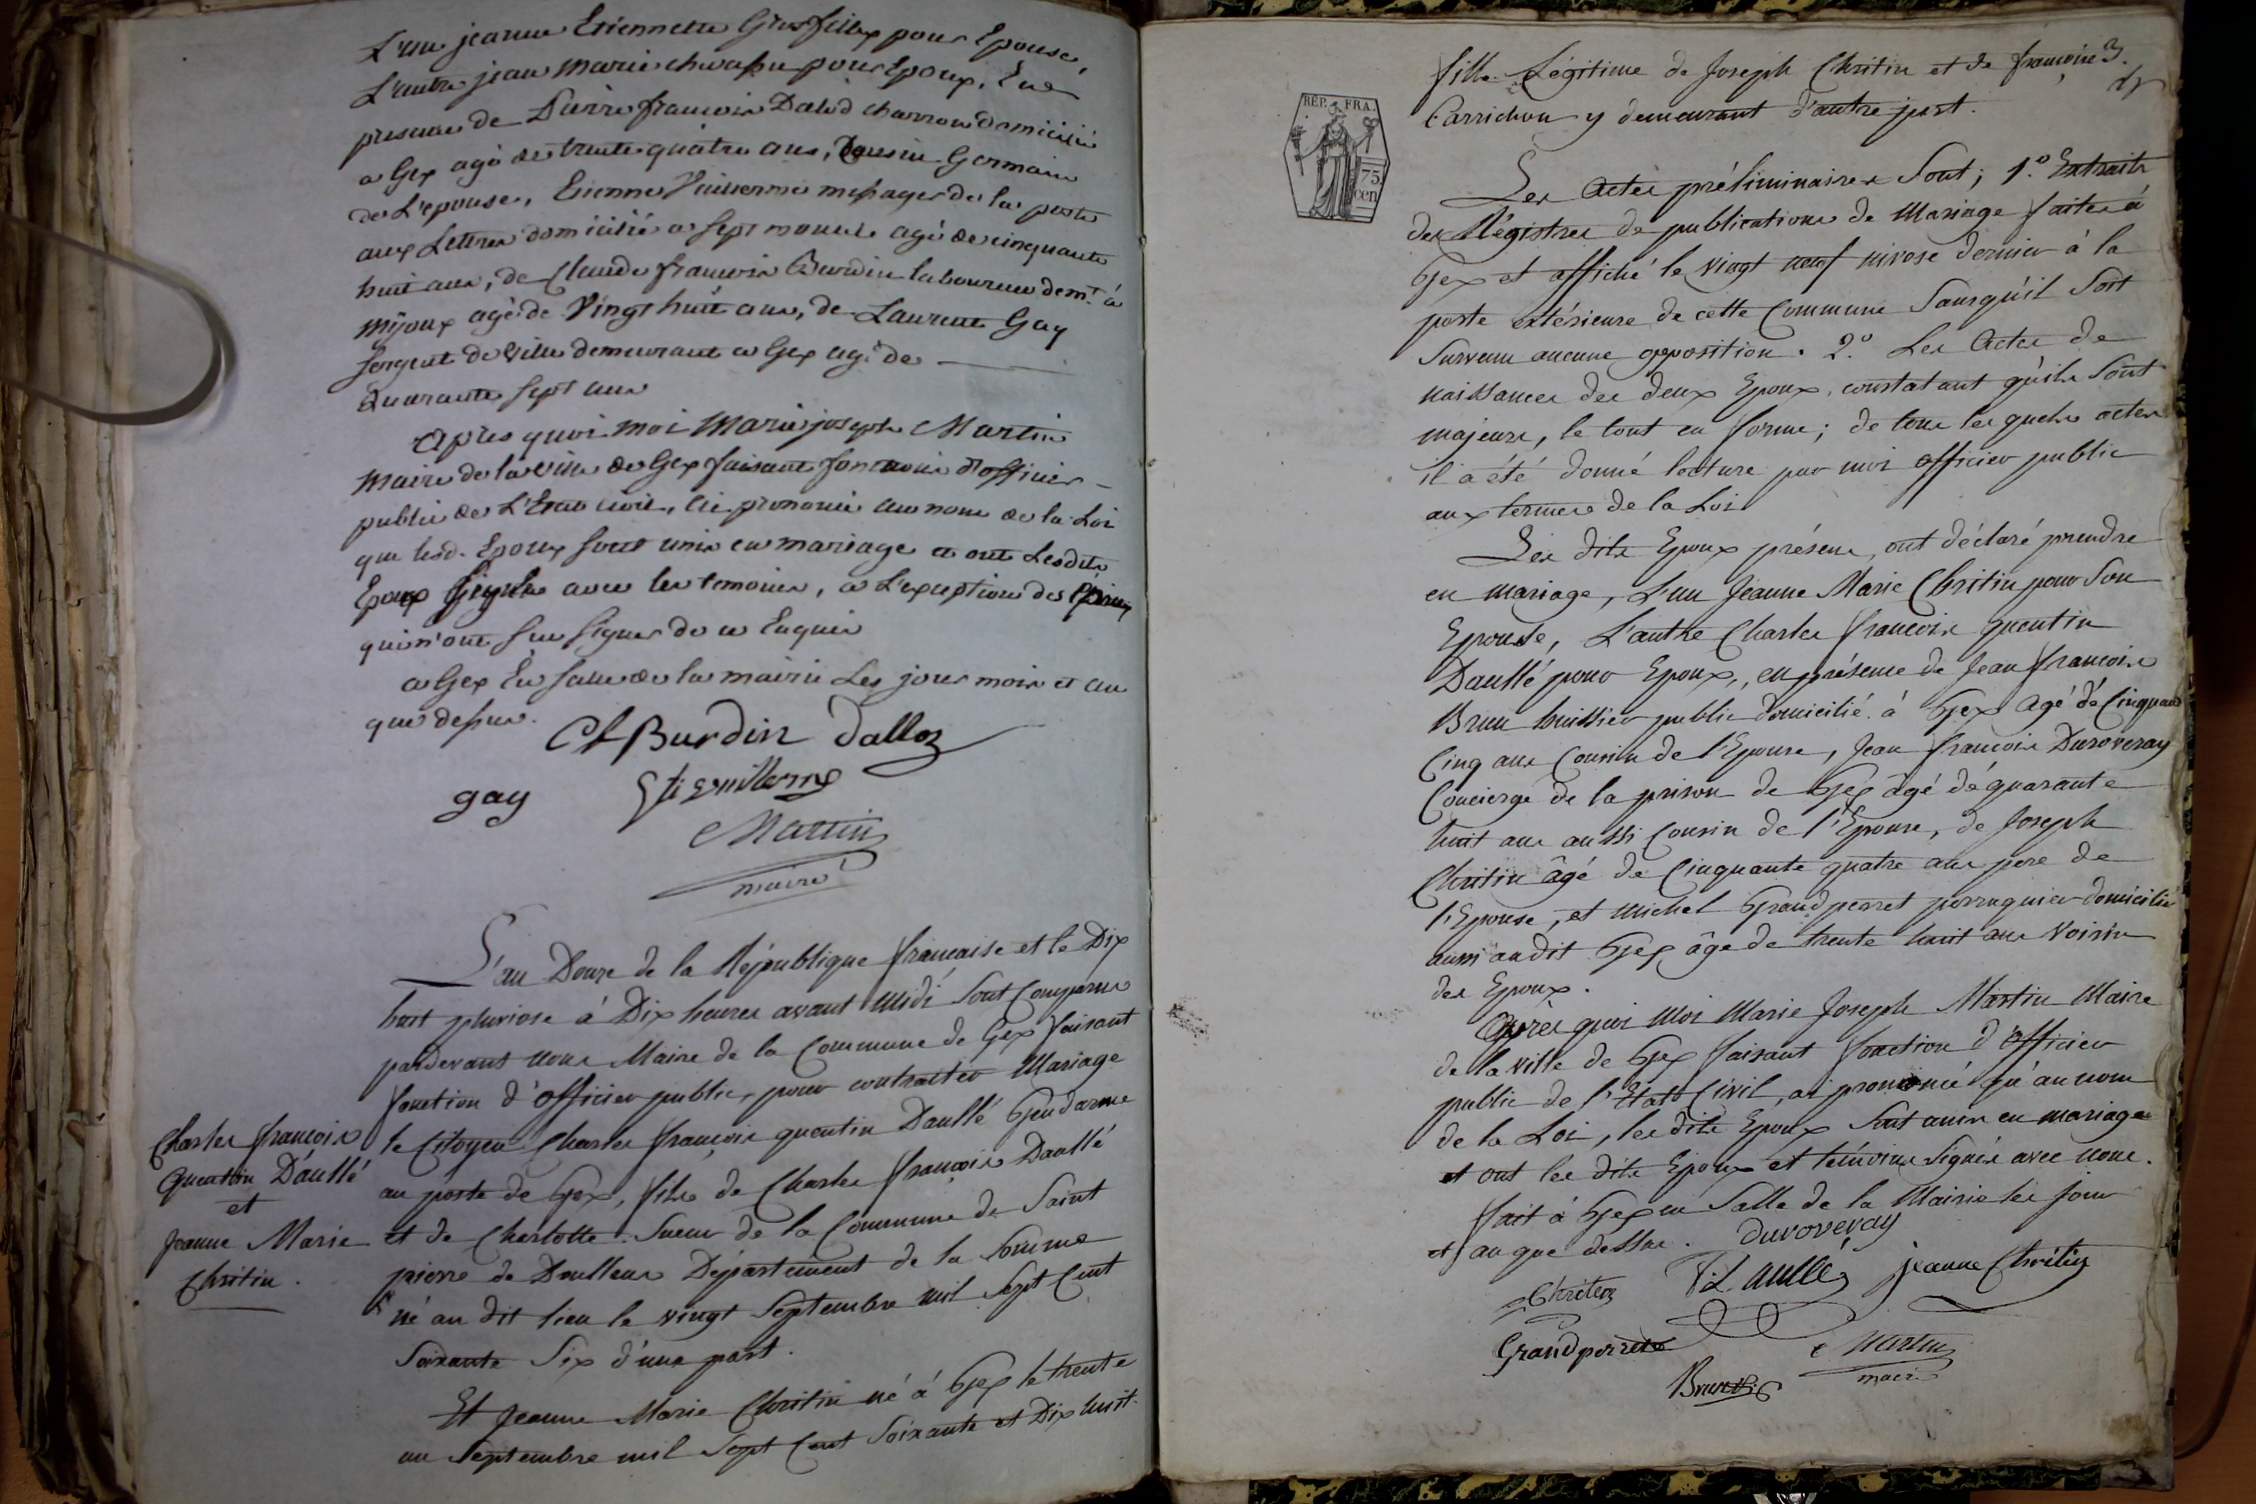 L'un jeanne Etiennette Grosfilley pour Epouse,
L'autre jean marie chevassu pour Epoux, En
presence de Pierre francois David charron domicilié
a Gex agé de trente quatre ans, Cousin Germain
de L'epouse, Etienne Vuillerme messager de la poste
aux Lettres domicilié a Sept moncel agé de cinquante
huit ans, de Claude francois Burdin laboureur demt. à
mijoux agé de Vingt huit ans, de Laurent Gay
sergent de ville demeurant a Gex agé de
quarante sept ans
apres quoi moi Marie joseph Martin
maire de la ville de Gex faisant fonction d'officier
public de L'Etat civil, ai prononcé au nom de la Loi
que lesd. Epoux sont unis en mariage et ont Lesdits
Epoux signés avec les temoins, a L'exception des
qui n'ont su signer de ce Enquis
a Gex En salle de la mairie Les jour mois et an
que dessus.
Cf Burdin Dalloz
gay Eti vuillerme
Martin
maire
L'an Douze de la République française et le Dix
huit pluviose à Dix heures avant midi Sont Comparus
pardevant nous Maire de la Commune de Gex faisant
fonction d'officier public, pour contracter Mariage
le Citoyen Charles françois quentin Daullé Gendarme
au poste de Gex, fils de Charles françois Daullé
et de Charlotte Sueur de la Commune de Saint
pierre de Doullens Département de la Somme
né au dit lieu le vingt Septembre mil Sept Cent
Soixante Six d'une part.
Et Jeanne Marie Chritin né à Gex le trente
un Septembre mil Sept Cent Soixante et Dix huit
Charles françois
Quentin Daullé
et
Jeanne Marie
Chritin.
fille Légitime de Joseph Chritin et de françoise
Carrichon y demeurant d'autre part.
3.
RÉP. FRA.
75
cen
Les Actes préliminaires Sont; 1.° Extraits
des Régistres de publications de Mariage faites à
Gex et affiché le vingt neuf nivose dernier à la
porte extérieure de cette Commune Sans qu'il Soit
Survenu aucune opposition. 2.° Les Actes de
naissances des deux Epoux, constatant qu'ils Sont
majeurs, le tout en forme; de tous les quels actes
il a été donné lecture par moi officier public
aux termes de la Loi
Les dits Epoux présens, ont déclaré prendre
en mariage, L'un Jeanne Marie Chritin pour Son
Epouse, L'autre Charles françois quentin
Daullé pour Epoux, en présence de Jean françois
Brun huissier public domicilié à Gex Agé de Cinquante
Cinq ans Cousin de l'Epouse, Jean françois Duroveray
Concierge de la prison de Gex âgé de quarante
huit ans aussi Cousin de l'Epouse, de Joseph
Chritin âgé de Cinquante quatre ans pere de
l'Epouse, et Michel Grandperret perruquier domicilié
aussi audit Gex âge de trente huit ans Voisin
des Epoux.
Après quoi Moi Marie Joseph Martin Maire
de la ville de Gex faisant fonction d'officier
public de l'Etat Civil, ai prononcé qu'au nom
de la Loi, les dits Epoux Sont unis en mariage
et ont les dits Epoux et témoins Signés avec nous.
fait à Gex en Salle de la Mairie les jour
et an que dessus. Duroveray
Chretien Daullé jeanne Chritin
Grandperret Martin
maire
Brun